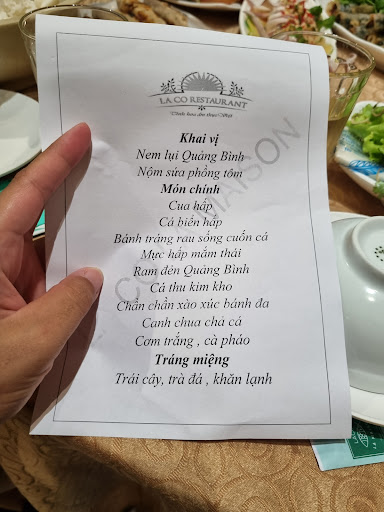 LA CO RESTAURANT
Tinh hoa ẩm thực Việt
Khai vị
Nem lụi Quảng Bình
Nộm sứa phồng tôm
Món chính
Cua hấp
Cá biển hấp
Bánh tráng rau sống cuốn cá
Mực hấp mắm thái
Ram đèn Quảng Bình
Cá thu kim kho
Chẳn chẳn xào xúc bánh đa
Canh chua chả cá
Cơm trắng , cà pháo
Tráng miệng
Trái cây, trà đá , khăn lạnh
MAISON